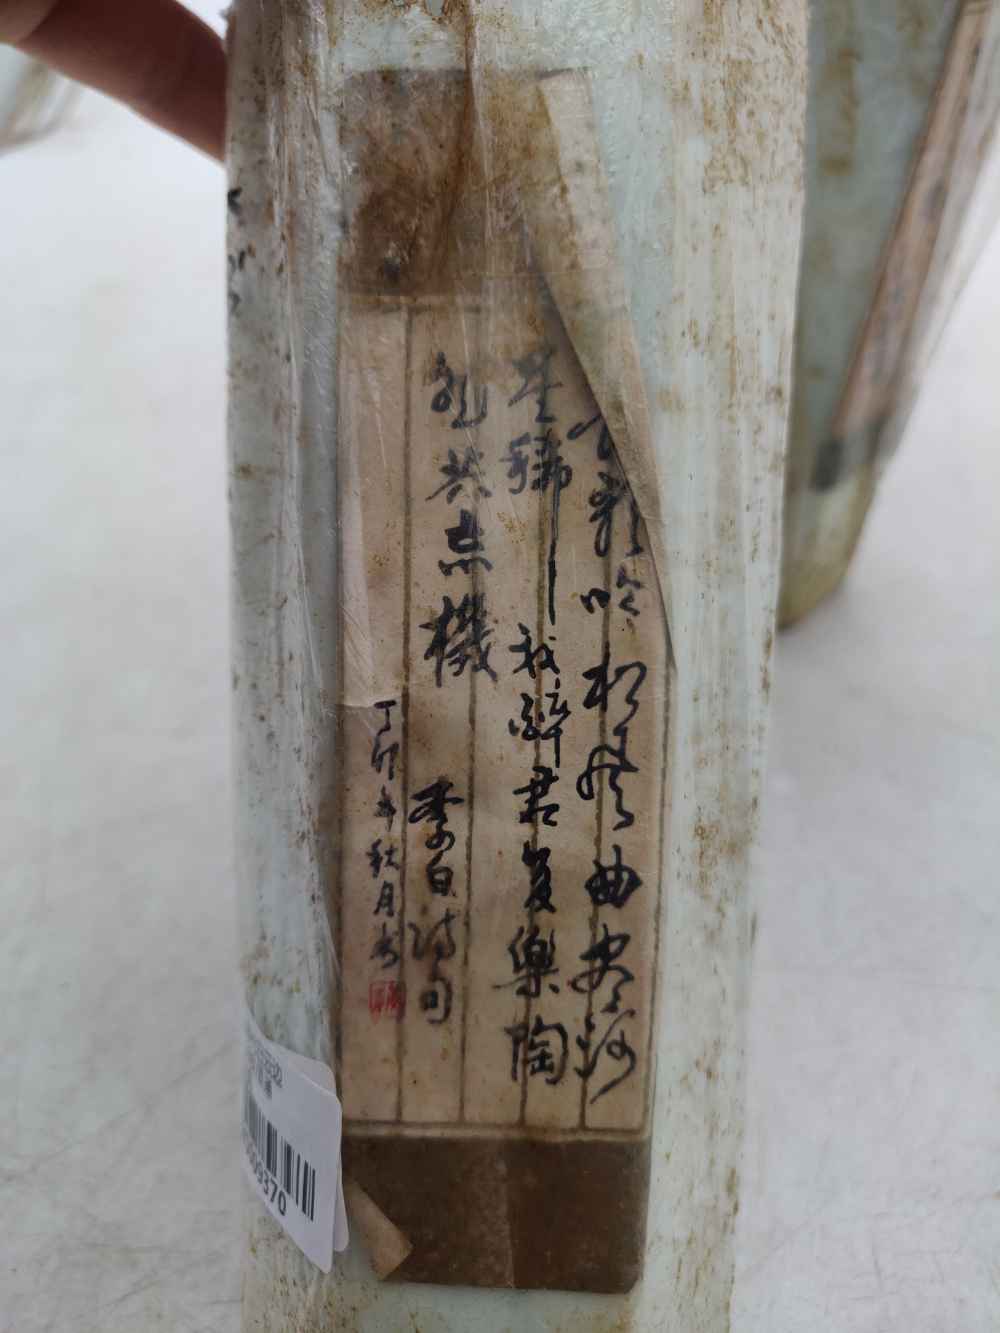 长歌吟松风曲尽河
星稀我醉君复樂陶
然共忘機 李白诗句
丁卯年秋月书
009370